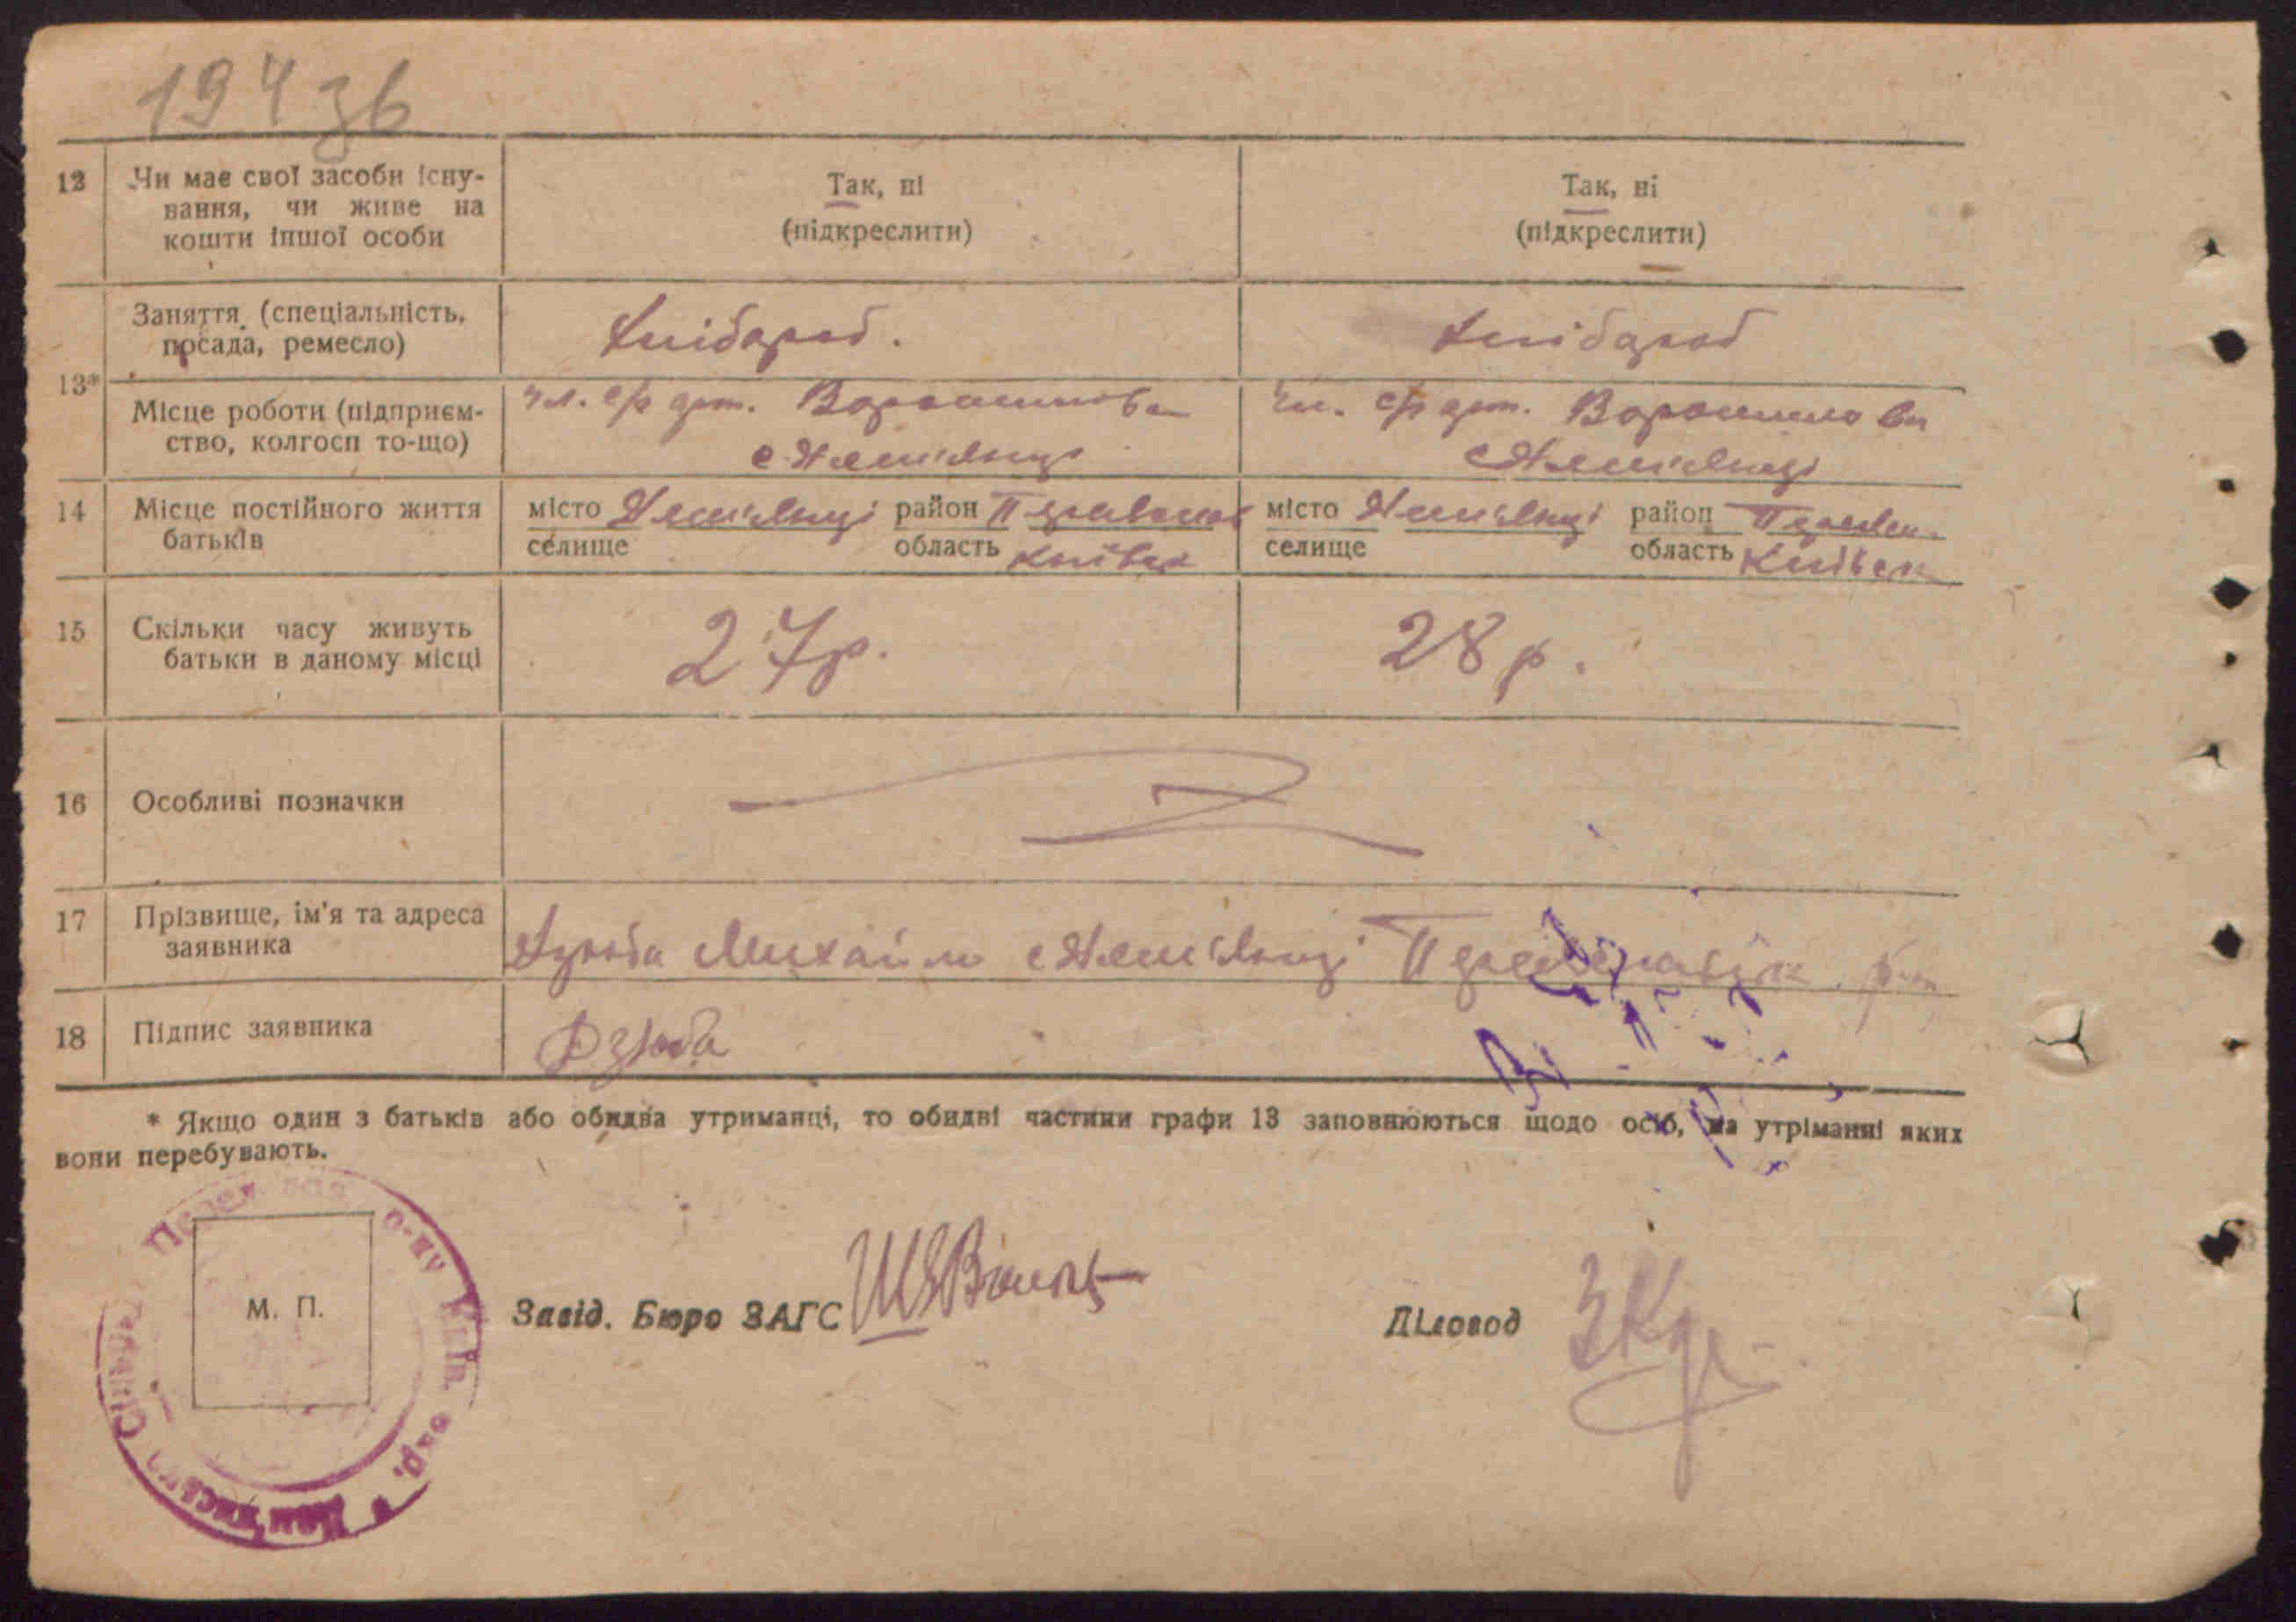 194 зв
12 Чи має свої засоби існу-
вання, чи живе на
кошти іншої особи
Так, ні
(підкреслити)
Так, ні
(підкреслити)
13*
Заняття (спеціальність,
посада, ремесло)
Хлібороб.
Хлібороб
Місце роботи (підприєм-
ство, колгосп то-що)
Чл. с/г арт. Ворошилова
Чл. с/г арт. Ворошилова
14 Місце постійного життя
батьків
місто район
селище область Київськ
місто район
селище область Київськ
15 Скільки часу живуть
батьки в даному місці
27р.
28р.
16 Особливі позначки
17 Прізвище, ім'я та адреса
заявника
Дзюба Михайло
18 Підпис заявника
Дзюба
* Якщо один з батьків або обидва утриманці, то обидві частини графи 13 заповнюються щодо осіб, на утріманні яких
вони перебувають.
М. П.
Завід. Бюро ЗАГС
Діловод